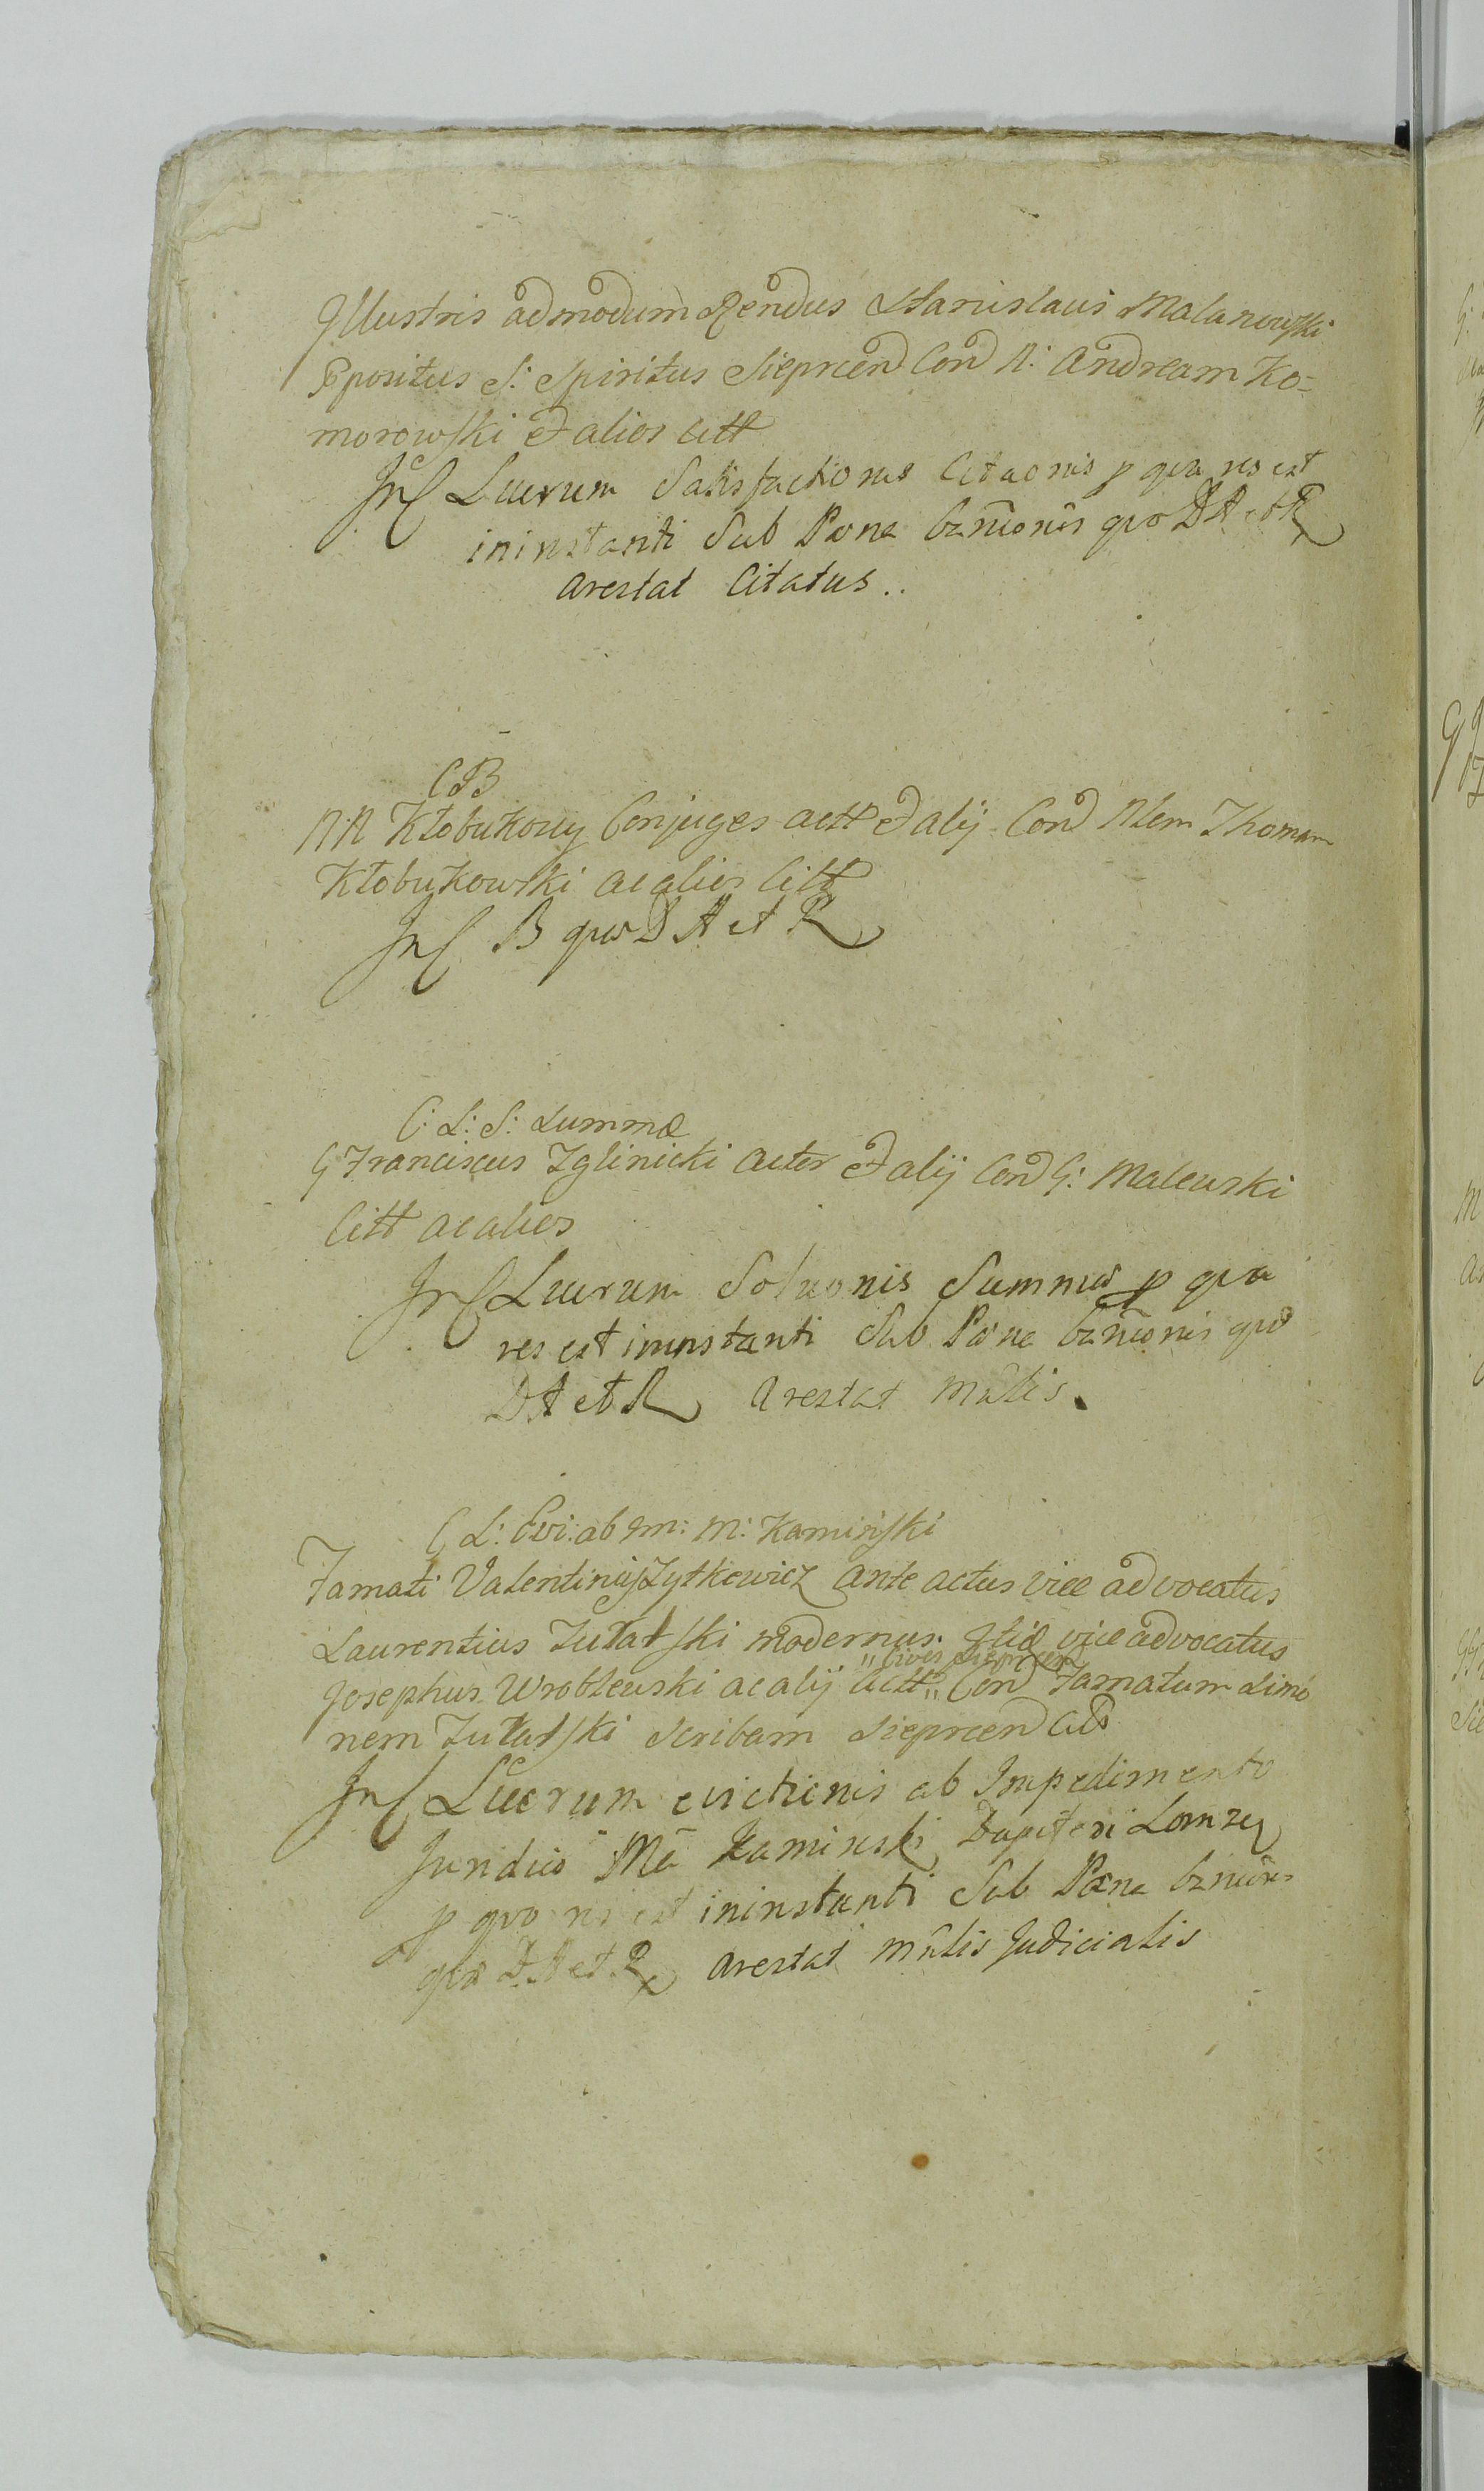 Illustris admodum Rendus Stanislaus Malanowski
Ppositus S: Spiritus Sieprcen Con N: Andream Ko=
morowski et alios citt
In C Lucrum Satisfactionis Citaonis p qua res est
ininstanti Sub Pœna Banīonis quo D A et R
arestat Citatus..
C B
N:N Kłobukowy Conjuges actt et alij Con Nlem Thomam
Kłobukowski ac alios Citt
In C B quo D A et R
C: L: S: Summæ
G Franciscus Zglinicki actor et alij Con G: Malewski
Citt ac alios
In C Lucrum Soluonis Summæ p qua
res est ininstanti Sub Pœna banīonis quo
D A et R arestat Mtlis.
C L: Evi: ab Im: M: Kamiński
Famati Valentinus Zytkiewicz ante actus vice advocatus
Laurentius Zutatski modernus vice advocatus
"Cives Sieprcen
Josephus Wroblewski ac alij actt" Con Famatum Simo
nem Zutatski Scribam Sieprcen Citt
In C Lucrum evictionis ab Impedimento
Juridico M Kaminski Dapiferi Lomzen
p quo res est ininstanti Sub Pœna banīonis
quo D A et R arestat Mtlis Judicialis